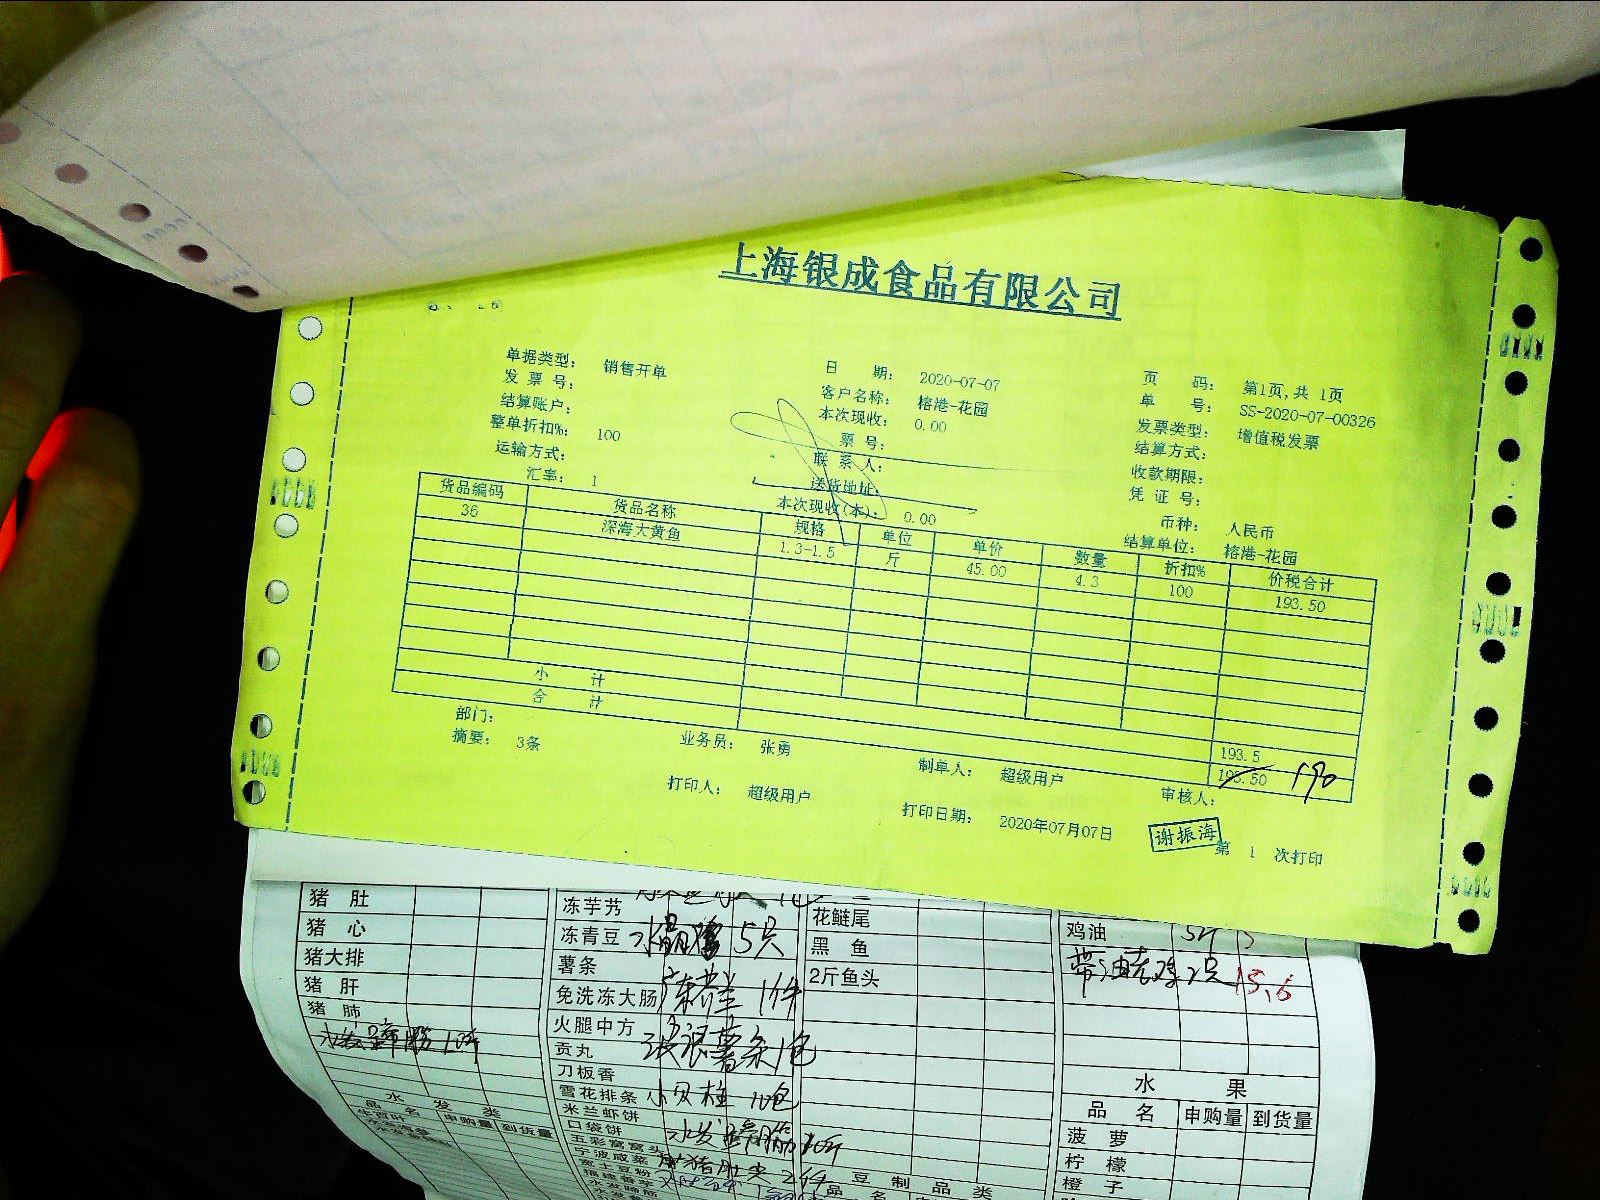 上海银成食品有限公司
单据类型： 销售开单 日 期： 2020-07-07 页 码： 第1页,共 1页
发 票 号： 客户名称： 榕港-花园 单 号： SS-2020-07-00326
结算账户： 本次现收： 0.00 发票类型： 增值税发票
整单折扣%： 100 票 号： 结算方式：
运输方式： 联 系 人： 收款期限：
汇率： 1 送货地址： 凭 证 号：
本次现收(本)： 0.00 币种： 人民币
结算单位： 榕港-花园
货品编码 货品名称 规格 单位 单价 数量 折扣% 价税合计
36 深海大黄鱼 1.3-1.5 斤 45.00 4.3 100 193.50
小 计 193.5
合 计 193.50 190
部门： 业务员： 张勇 制单人： 超级用户 审核人：
摘要： 3条
打印人： 超级用户 打印日期： 2020年07月07日 谢振海 第 1 次打印
猪 肚 冻芋艿 花鲢尾 鸡油
猪 心 冻青豆 5只 黑 鱼 带油老鸡2只 15.6
猪大排 薯条 2斤鱼头
猪 肝 免洗冻大肠 1件
猪 肺 火腿中方
贡丸 波浪薯条1包
刀板香 水 果
雪花排条 小贝柱 10包 品 名 申购量 到货量
米兰虾饼 菠 萝
水 发 类 口袋饼 柠 檬
品 名 申购量 到货量 五彩窝窝头 橙 子
宁波咸菜
豆 制 品 类